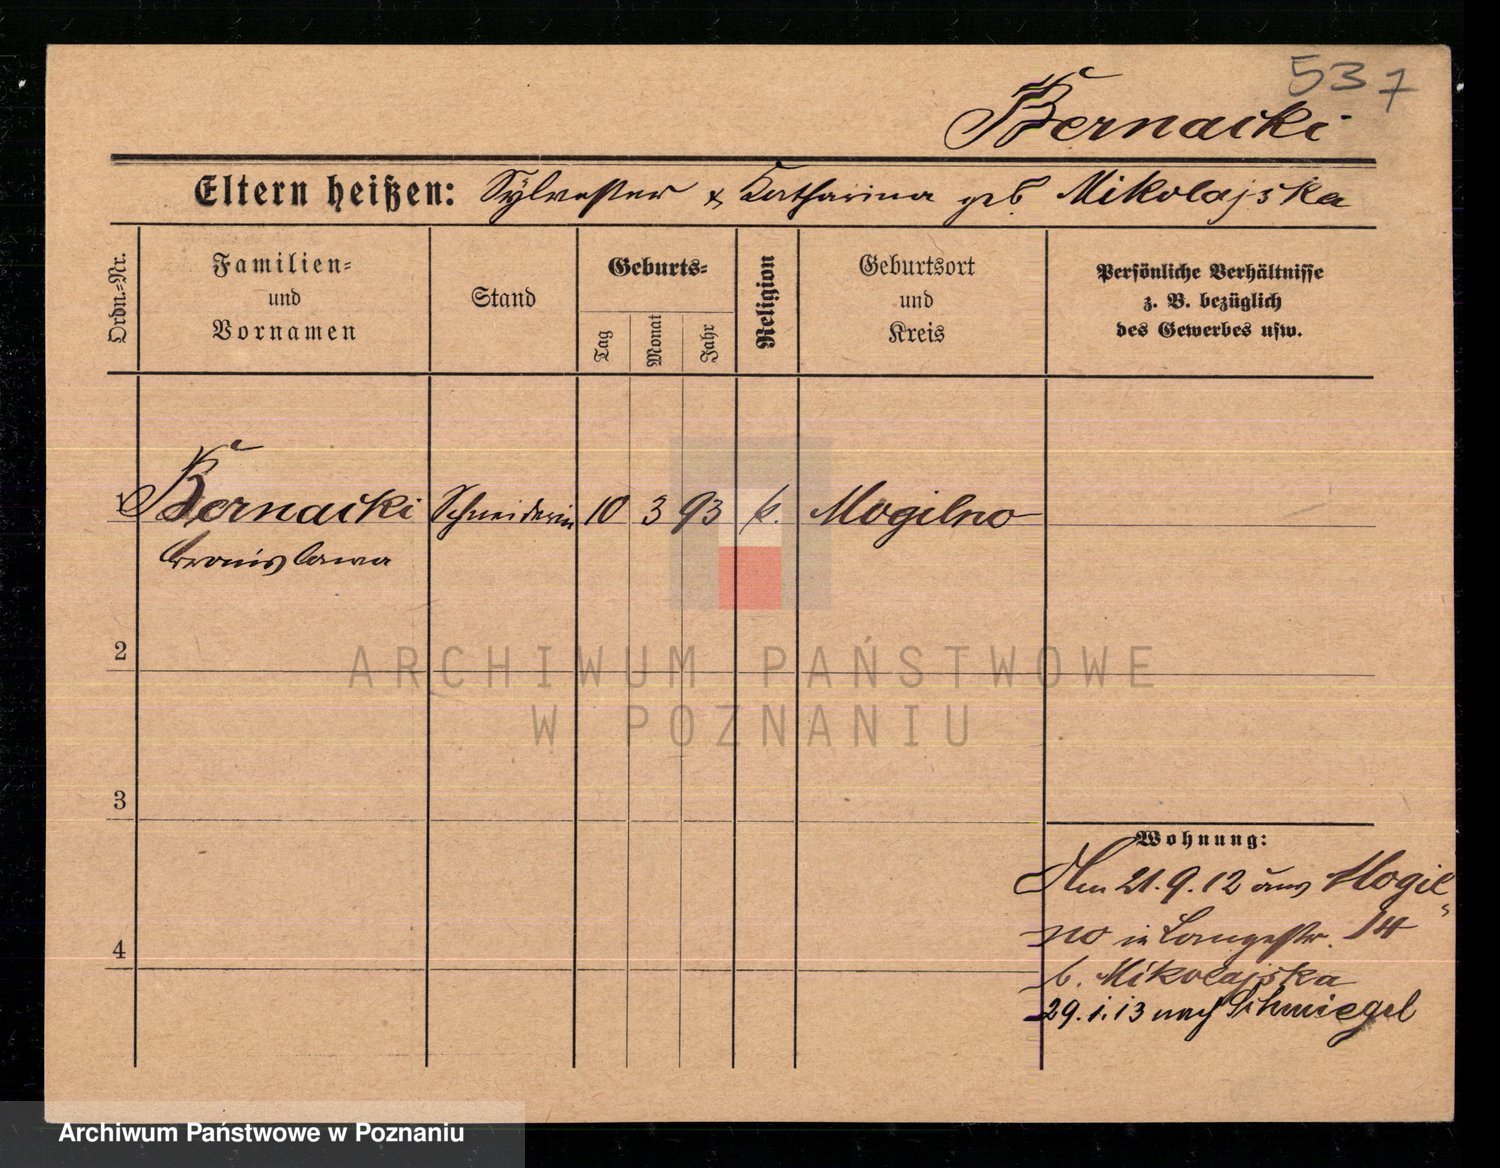 537
Bernacki
Eltern heißen: Sylvester & Katharina geb Mikolajska
Ordn.-Nr.
Familien-
und
Vornamen
Stand
Geburts-
Tag
Monat
Jahr
Religion
Geburtsort
und
Kreis
Persönliche Verhältnisse
z. B. bezüglich
des Gewerbes usw.
Bernacki Schneiderin 10 3 93 k. Mogilno
Bronislawa
2
3
4
ARCHIWUM PAŃSTWOWE
W POZNANIU
Wohnung:
Am 21.9.12 aus Mogil-
no in Langestr. 14
b. Mikolajska
29.1.13 nach Schmiegel
Archiwum Państwowe w Poznaniu